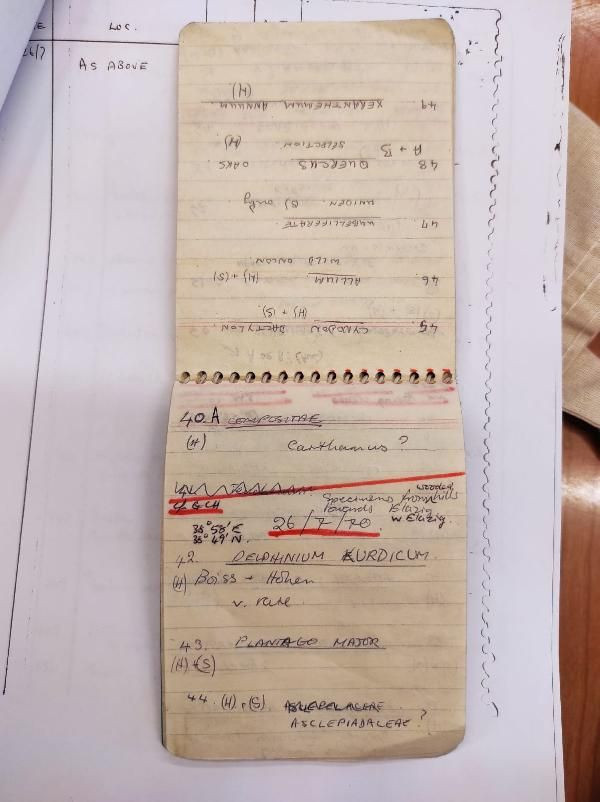 LOC.
26/7
AS ABOVE
40.A COMPOSITAE
(H) Carthamus ?
Specimens from wooded hills
towards Elazig
W Elazig.
26/7/70
38° 49' N.
42. DELPHINIUM KURDICUM.
(H) Boiss + Hohen
v. rare
43. PLANTAGO MAJOR
(H) + (S)
44. (H) + (S)
ASCLEPIADACEAE ?
45. CYNODON DACTYLON.
(H) + (S).
46. ALLIUM (H) + (S)
WILD ONION
47. UMBELLIFERATE
UNIDEN (S) only.
48 QUERCUS OAKS.
A + B SELECTION (H)
49. XERANTHEMUM ANNUUM
(H).